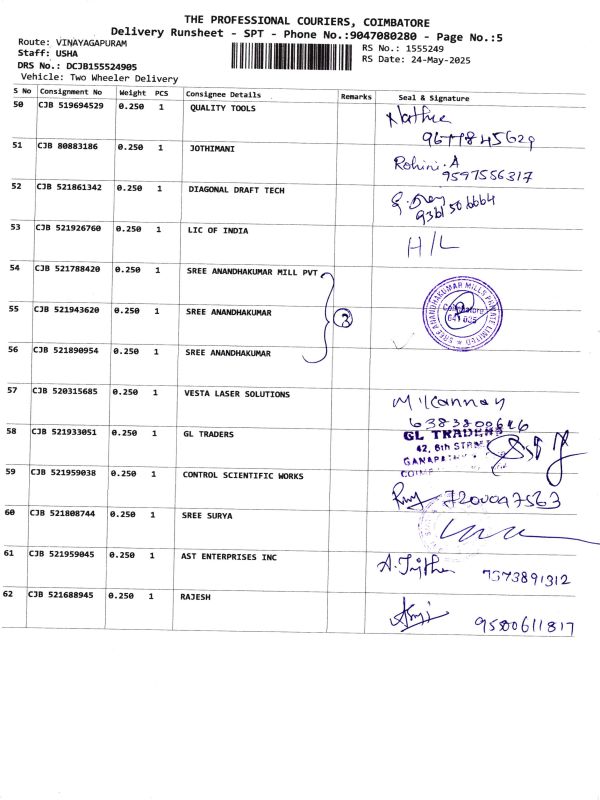 THE PROFESSIONAL COURIERS, COIMBATORE
Delivery Runsheet - SPT - Phone No.:9047080280 - Page No.:5
Route: VINAYAGAPURAM
RS No.: 1555249
Staff: USHA
RS Date: 24-May-2025
DRS No.: DCJB155524905
Vehicle: Two Wheeler Delivery
S No Consignment No Weight PCS Consignee Details Remarks Seal & Signature
50 CJB 519694529 0.250 1 QUALITY TOOLS
51 CJB 80883186 0.250 1 JOTHIMANI Rohini.A
9597556317
52 CJB 521861342 0.250 1 DIAGONAL DRAFT TECH
53 CJB 521926760 0.250 1 LIC OF INDIA H/L
54 CJB 521788420 0.250 1 SREE ANANDHAKUMAR MILL PVT
55 CJB 521943620 0.250 1 SREE ANANDHAKUMAR 3 SREE ANANDHAKUMAR MILLS PRIVATE LIMITED
Coimbatore
641 035
56 CJB 521890954 0.250 1 SREE ANANDHAKUMAR
57 CJB 520315685 0.250 1 VESTA LASER SOLUTIONS
58 CJB 521933051 0.250 1 GL TRADERS GL TRADERS
42, 6th
59 CJB 521959038 0.250 1 CONTROL SCIENTIFIC WORKS
7200047563
60 CJB 521808744 0.250 1 SREE SURYA
61 CJB 521959045 0.250 1 AST ENTERPRISES INC 7373891312
62 CJB 521688945 0.250 1 RAJESH 9500611817